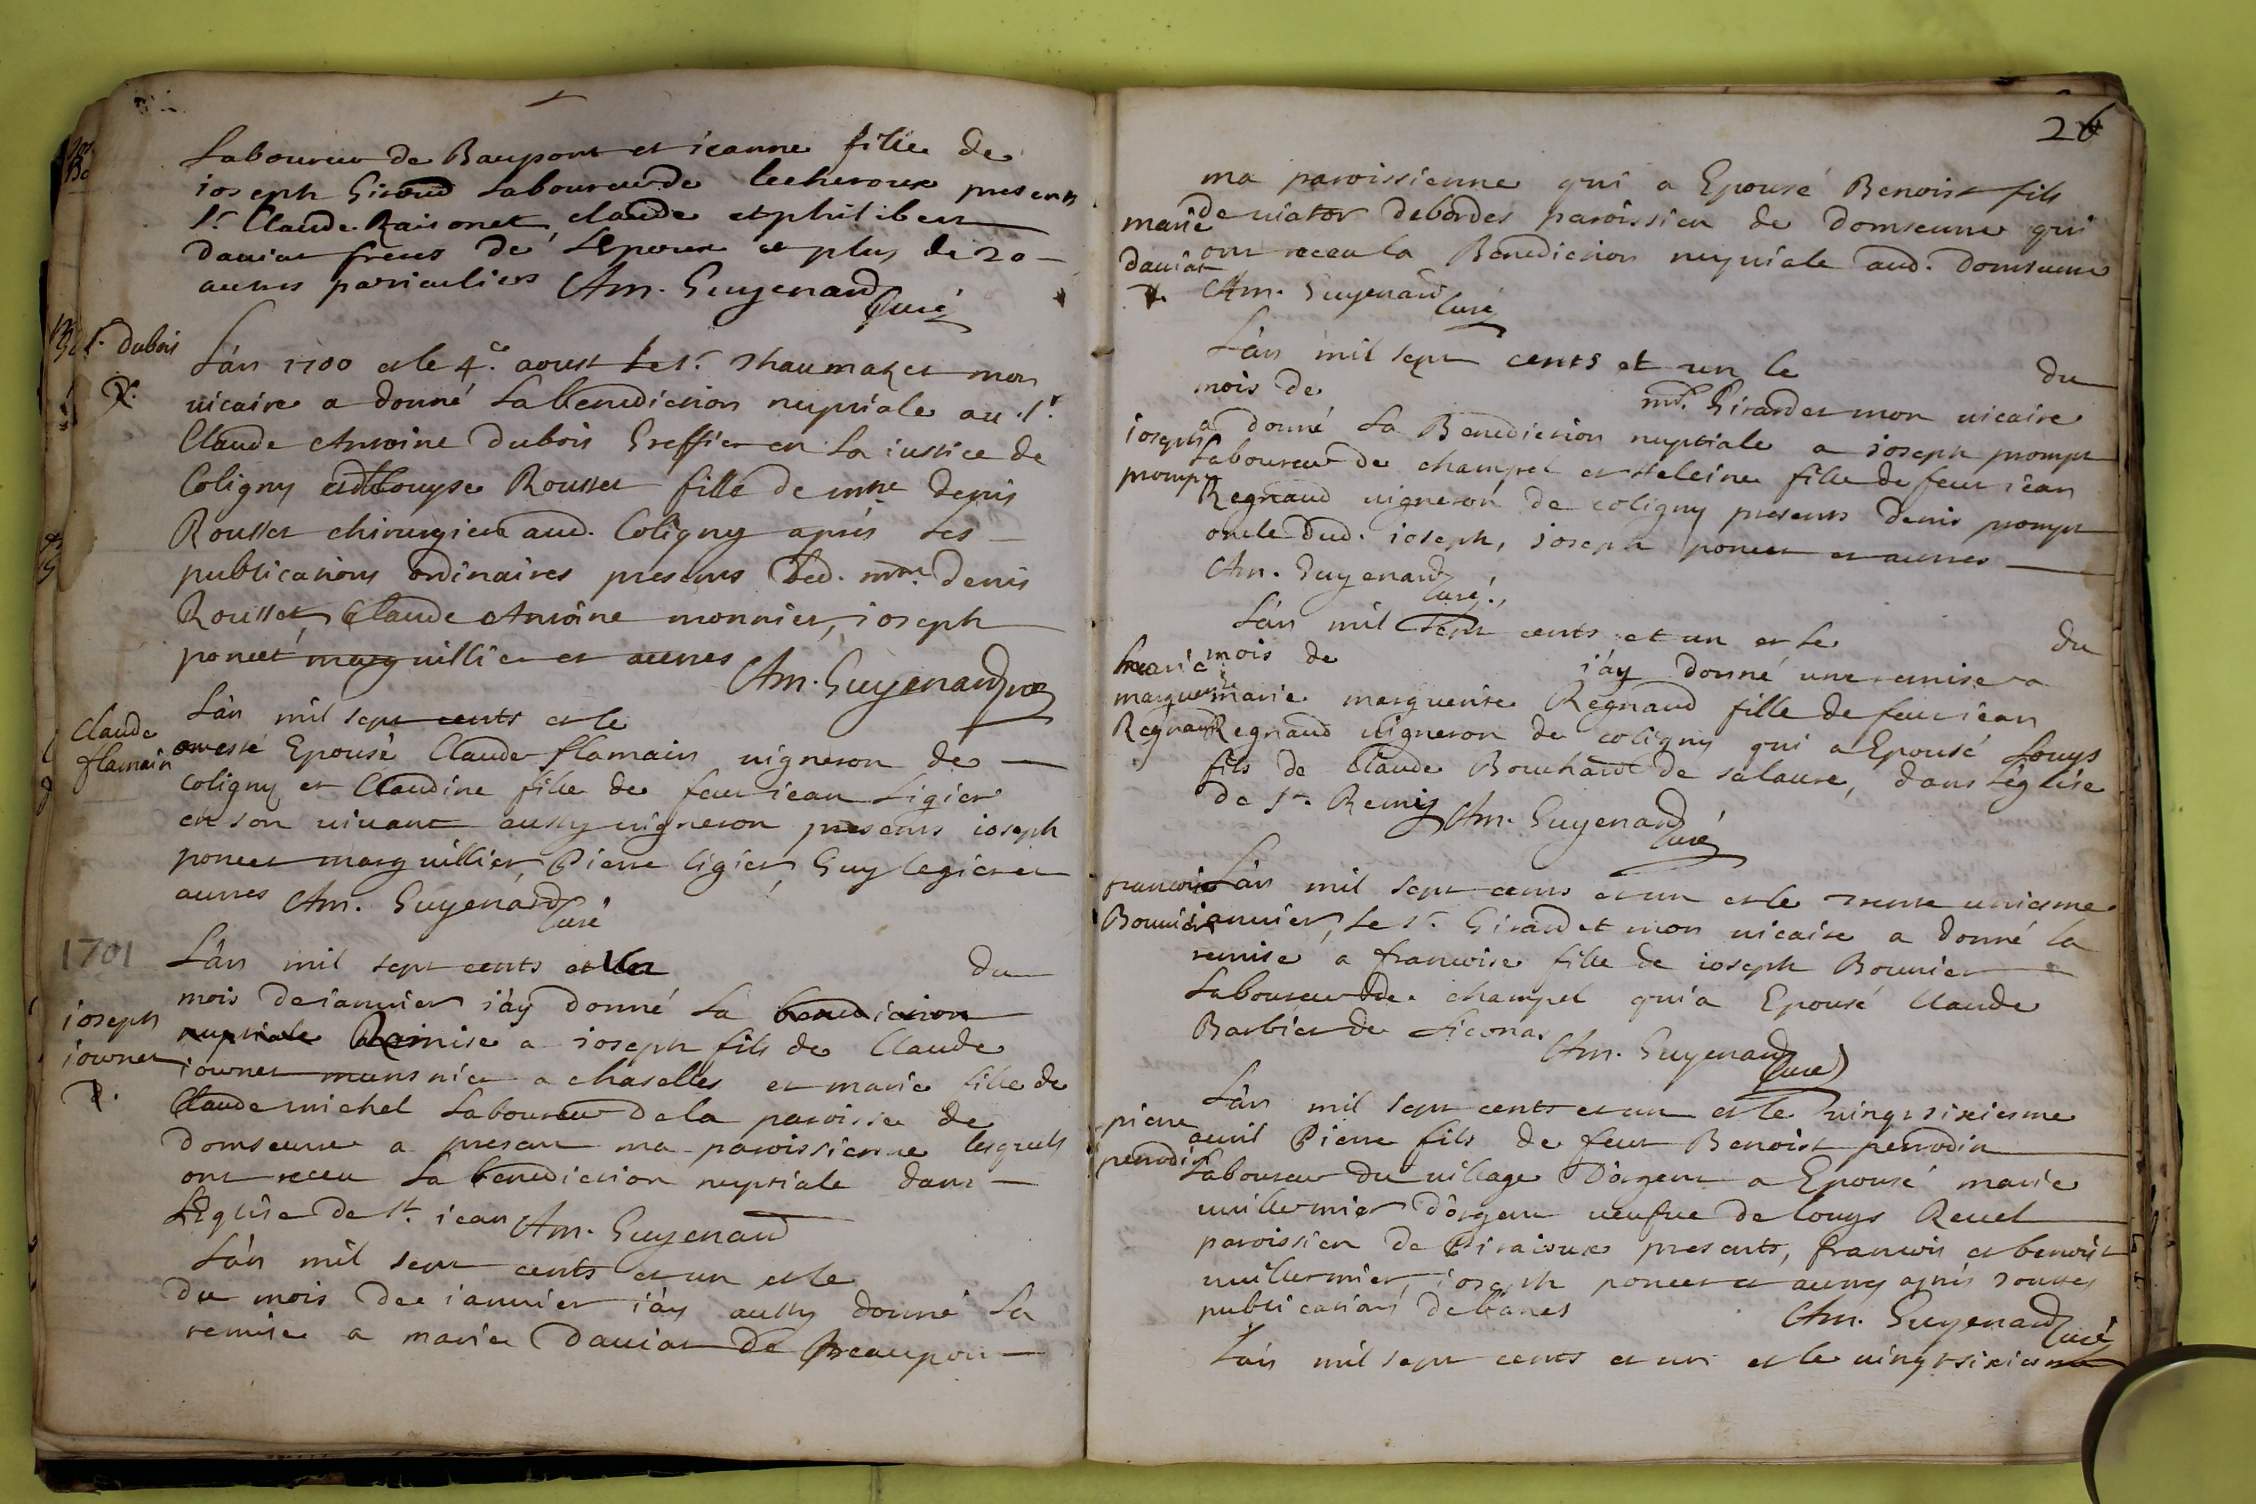 Laboureur de Baupont et ieanne fille de
ioseph Giroud Laboureur de lecheroux presents
Sr. Claude Raisonet, claude et philibert
daviat freres de Lepoux et plus de 20
autres particuliers Am. Guyenard Curé
Sr. dubois
L'an 1700 et le 4e. aoust le Sr. Thaumaket mon
vicaire a donné La benediction nuptiale au Sr.
Claude Antoine Dubois Greffier en La iustice de
Coligny et Louyse Rousset fille de mre Denis
Rousset chirurgien aud. Coligny aprés les
publications ordinaires presents led. mre. denis
Rousset, Claude Antoine monnier, ioseph
poncet marguillier et autres Am. Guyenard
claude
flamain
L'an mil sept cents et le
Epousé Claude flamain vigneron de
Coligny et Claudine fille de feu iean Ligier
en son vivant aussy vigneron presents ioseph
poncet marguillier, Pierre ligier, Guy legier et
autres Am. Guyenard Curé
1701
L'an mil sept cents et Un du
ioseph
iournet
mois de ianvier i'ay donné La benediction
nuptiale Remise a ioseph fils de Claude
iournet a chaselles et marie fille de
Claude michel Laboureur de la paroisse de
domseure a present ma paroissienne lesquels
ont receu La benediction nuptiale dans
L'Eglise de St. iean Am. Guyenard
L'an mil sept cents et un et le
du mois de ianvier i'ay aussy donné La
remise a marie Daviat de Beaupont
26
ma paroissienne qui a Epousé Benoist fils
marie
daviat
de viator debordes paroissien de domseure qui
ont receu la Benediction nuptiale aud. Domseure
Am. Guyenard Curé
L'an mil sept cents et un le du
mois de mre. Girardet mon vicaire
ioseph
prompt
a donné La Benediction nuptiale a ioseph prompt
Laboureur de champel et Heleine fille de feu iean
Regnaud vigneron de coligny presents denis prompt
oncle dud. ioseph, ioseph poncet et autres
Am. Guyenard Curé.
L'an mil sept cents et un et le du
mois de i'ay donné une remise a
marie
marguerite
Regnaud
marie marguerite Regnaud fille de feu iean
Regnaud vigneron de coligny qui a Epousé Louys
fils de Claude Bouchard de salavre, dans l'église
de St. Remy Am. Guyenard Curé
francoise
Bouvier
L'an mil sept cents et un et le trente uniesme
ianvier, Le Sr. Girardet mon vicaire a donné la
remise a francoise fille de ioseph Bouvier
Laboureur de champel qui a Epousé Claude
Barbier de Liconas Am. Guyenard Curé
L'an mil sept cents et un et le vingt sixiesme
pierre
perrodin
avril Pierre fils de feu Benoist perrodin
Laboureur du village D'orgent a Epousé marie
vuillermier d'orgent veufve de louys Revel
paroissien de Piraioux presents, francois et benoist
vuillermier, ioseph poncet et autres aprés toutes
publications de bancs Am. Guyenard Curé
L'an mil sept cents et un et le vingt sixiesme